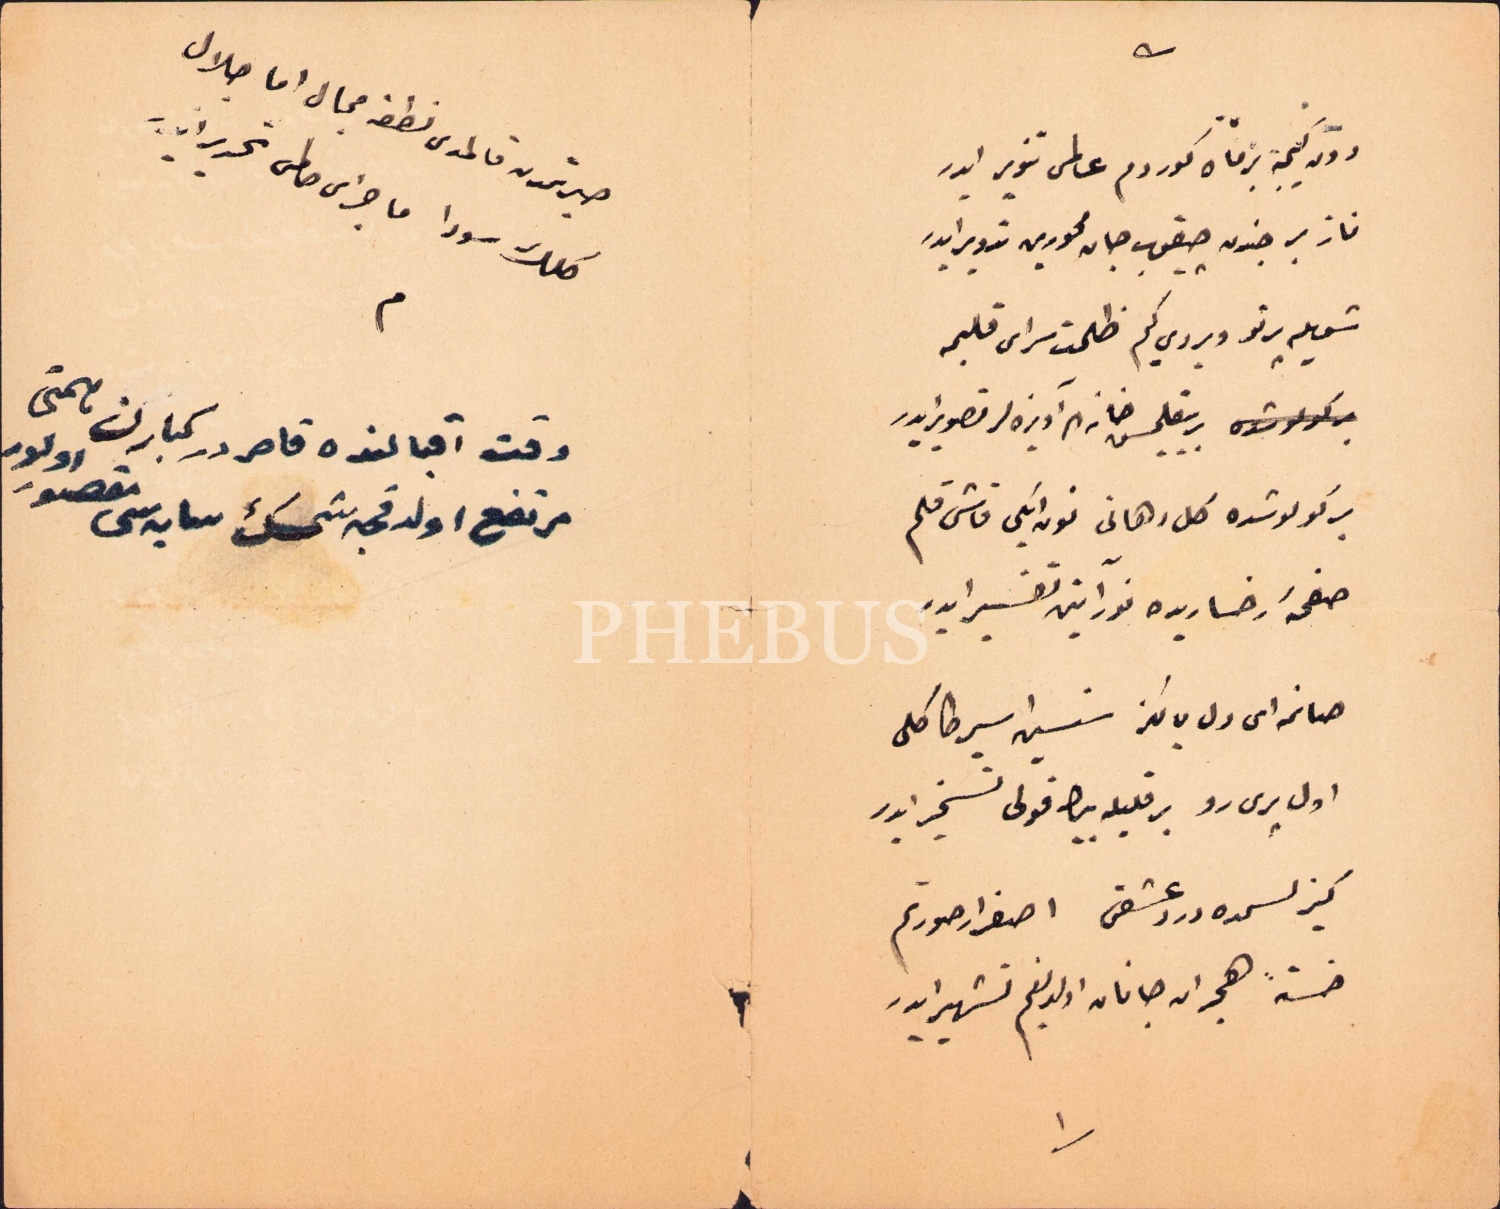 دون گیجه بر ماه گوردم عالمی تنویر ایدر
ناز بر جنون چیقوب جان محورین تدویر ایدر
شویله پرتو ویردی کیم ظلمت سرای قلبمه
بر گولوشده بر تقلمس خانه م آویزه لر تصویر ایدر
بر گولوشده گل دهانی نون ایکی قاشی قلم
صفحهٔ رخساریده نور آیتن تفسیر ایدر
صانمه ای دل یالکز سنسین اسیر کاکلی
اول پری رو بر قلیله بیك قولی تسخیر ایدر
گیزلسمده درد عشقی اصفرار صورتم
خستهٔ هجران جانان اولدیغم تشهیر ایدر
حیرتمدن قالمدی نطقه مجال اما جلال
كلك سودا ماجرای حالمی تحریر ایدر
م
وقت اقبالنده قاصردر کبارك همتی
مرتفع اولدقجه شمسك سایه سی تقصیر اولور
PHEBUS